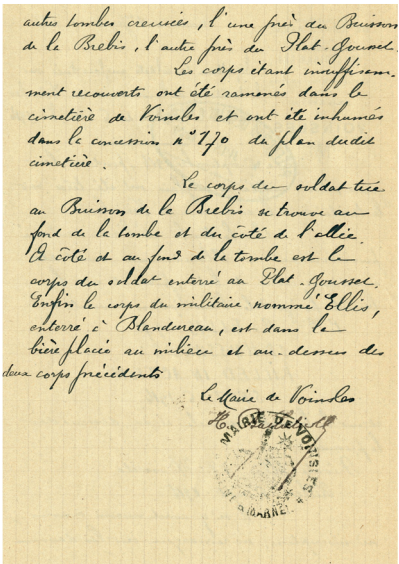 autres tombes creusées, l'une près du Buisson
de la Brebis, l'autre près du Plat-Gousset.
Les corps étant insuffisam-
ment recouverts ont été ramenés dans le
cimetière de Voinsles et ont été inhumés
dans la concession n° 170 du plan dudit
cimetière.
Le corps du soldat tué
au Buisson de la Brebis se trouve au
fond de la tombe et du côté de l'allée.
A côté et au fond de la tombe est le
corps du soldat enterré au Plat-Gousset.
Enfin le corps du militaire nommé Ellis,
enterré à Blandureau, est dans la
bière placée au milieu et au-dessus des
deux corps précédents
Le Maire de Voinsles
MAIRIE DE VOINSLES
SEINE & MARNE